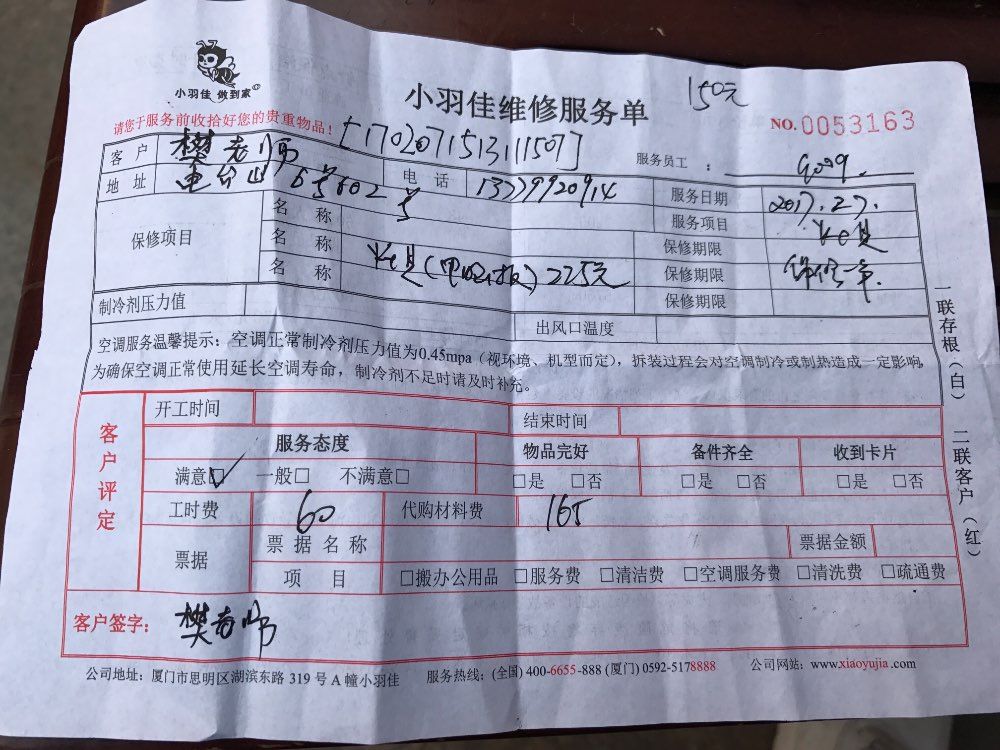 小羽佳 做到家
小羽佳维修服务单
150元
请您于服务前收拾好您的贵重物品!
NO.0053163
[1702071513111507]
客 户 樊老师
服务员工 : G009.
地 址 电台山6号602号
电 话 13779920914
服务日期 2017.2.7.
保修项目
名 称
服务项目
名 称
保修期限
名 称 (电脑板)225元
保修期限 保修一年.
制冷剂压力值
保修期限
出风口温度
空调服务温馨提示:空调正常制冷剂压力值为0.45mpa(视环境、机型而定),拆装过程会对空调制冷或制热造成一定影响,
为确保空调正常使用延长空调寿命,制冷剂不足时请及时补充。
一联存根(白) 二联客户(红)
客户评定
开工时间
结束时间
服务态度
物品完好
备件齐全
收到卡片
满意☑ 一般□ 不满意□
□是 □否
□是 □否
□是 □否
工时费 60
代购材料费 165
票据
票据名称
票据金额
项 目
□搬办公用品 □服务费 □清洁费 □空调服务费 □清洗费 □疏通费
客户签字: 樊老师
公司地址:厦门市思明区湖滨东路 319 号 A 幢小羽佳 服务热线:(全国) 400-6655-888 (厦门) 0592-5178888 公司网站:www.xiaoyujia.com